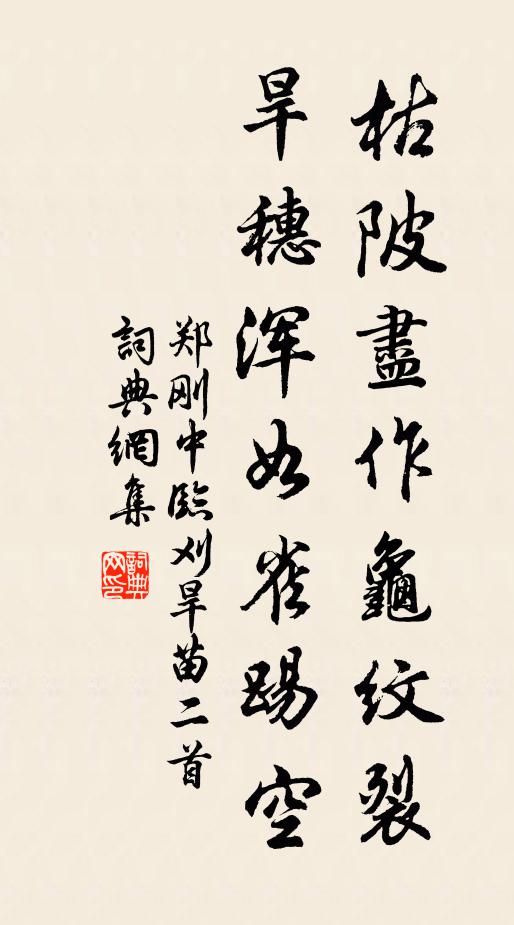 枯陂盡作龜紋裂
旱穗渾如雀踢空
郑刚中臨刈旱苗二首
詞典網集
詞典
网印